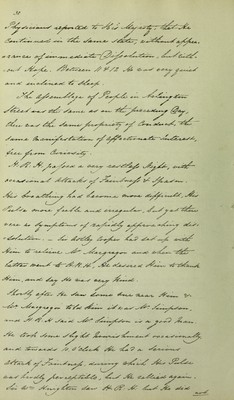 Physicians reported to His Majesty, that He
continued in the same state, without appear-
ances of immediate Dissolution, but with-
out Hope. Between 8 & 12 He was very quiet
and inclined to sleep.
The assemblage of People in Arlington
Street was the same as on the preceding Day,
there was the same propriety of Conduct, the
same manifestation of affectionate Interest,
free from Curiosity.
H.R.H. passed a very restless Night, with
occasional attacks of Faintness & Spasm.
His breathing had become more difficult, His
Pulse more feeble and irregular, but yet there
were no Symptoms of rapidly approaching dis-
solution — Sir Astley Cooper had sat up with
Him to relieve Mr Macgregor and when the
latter went to H.R.H., He desired Him to thank
Him, and say He was very kind.
Shortly after He saw some one near Him &
Mr Macgregor told Him it was Mr Simpson,
and H.R.H. said Mr Simpson is a good man.
He took some slight nourishment occasionally
and towards o'clock He had a serious
attack of Faintness, during which His Pulse
was hardly perceptible, but He rallied again.
Sir Wm Knighton saw H.R.H. but He did
not